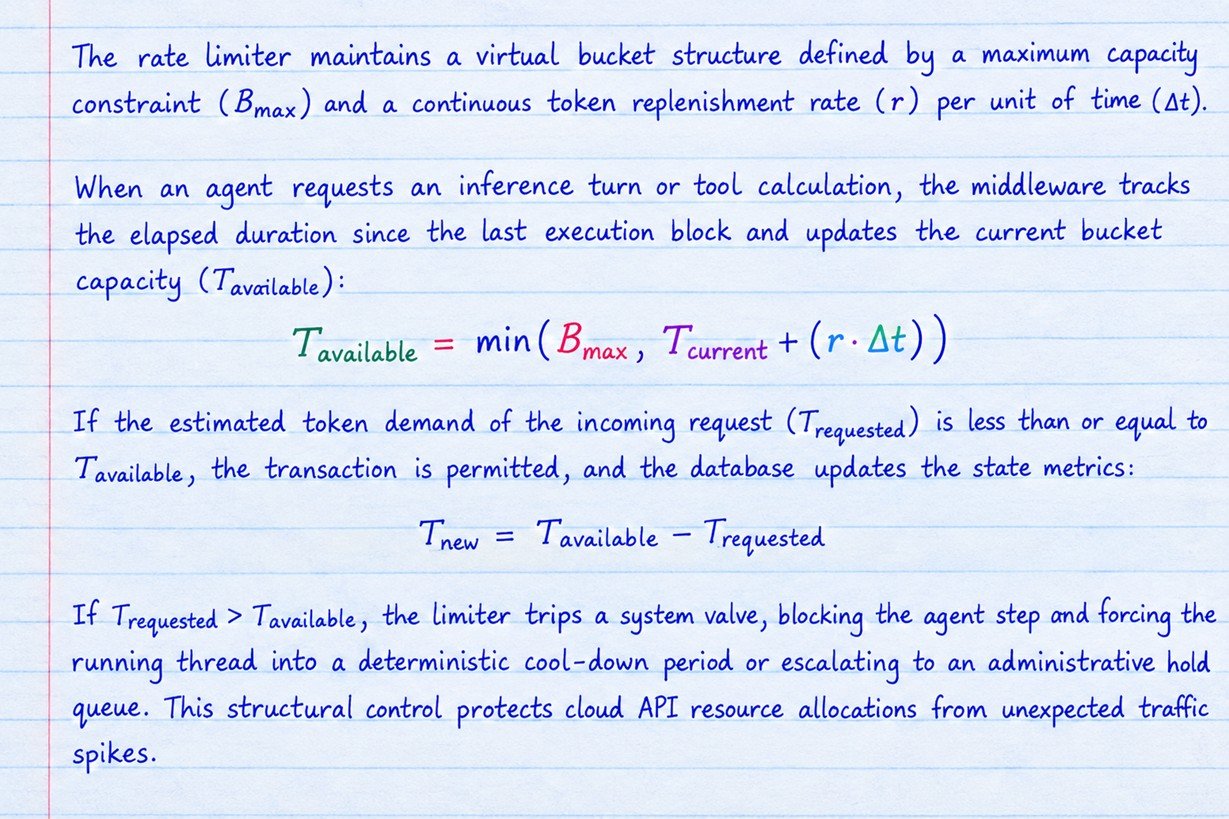 The rate limiter maintains a virtual bucket structure defined by a maximum capacity
constraint (B_max) and a continuous token replenishment rate (r) per unit of time (Δt).
When an agent requests an inference turn or tool calculation, the middleware tracks
the elapsed duration since the last execution block and updates the current bucket
capacity (T_available):
T_available = min(B_max, T_current + (r · Δt))
If the estimated token demand of the incoming request (T_requested) is less than or equal to
T_available, the transaction is permitted, and the database updates the state metrics:
T_new = T_available − T_requested
If T_requested > T_available, the limiter trips a system valve, blocking the agent step and forcing the
running thread into a deterministic cool-down period or escalating to an administrative hold
queue. This structural control protects cloud API resource allocations from unexpected traffic
spikes.